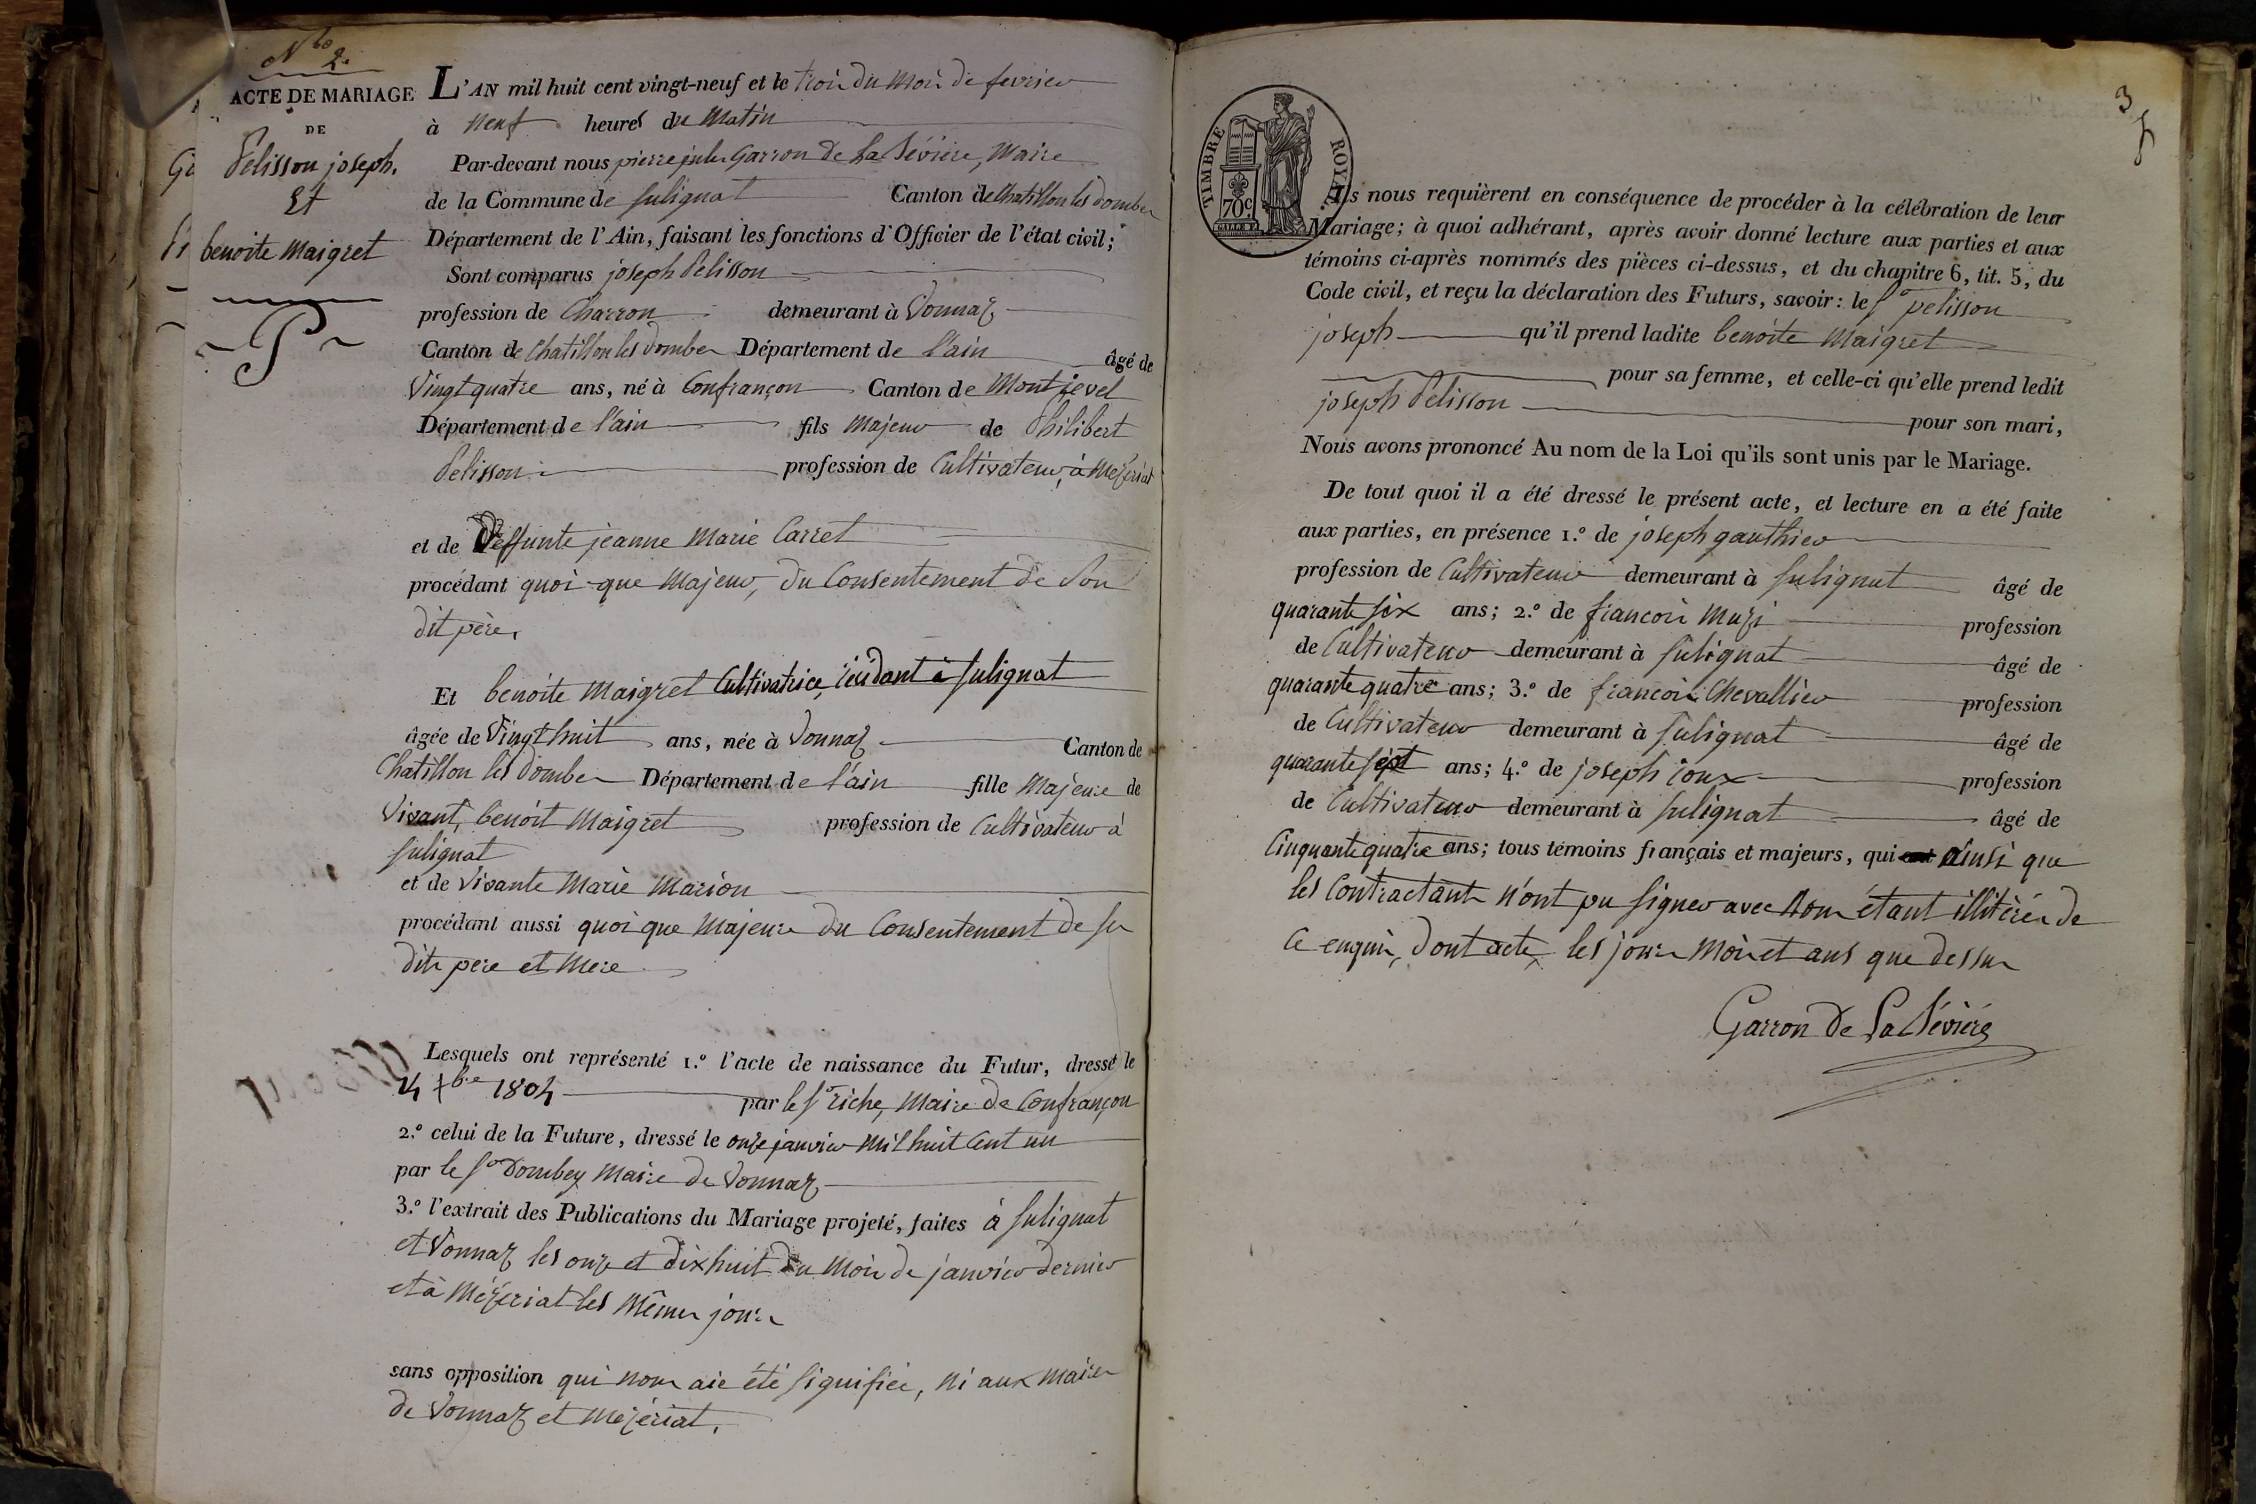 Nbo 2.
ACTE DE MARIAGE
DE
Pélisson joseph.
Et
benoite Maigret
L'AN mil huit cent vingt-neuf et le trois du mois de fevrier
à neuf heures du Matin
Par-devant nous pierre jules Garron de La Sévière, Maire
de la Commune de Sulignat Canton de Chatillon les dombes
Département de l'Ain, faisant les fonctions d'Officier de l'état civil;
Sont comparus joseph Pelisson
profession de Charron demeurant à Vonnaz
Canton de Chatillon les dombes Département de l'ain âgé de
Vingt quatre ans, né à Confrançon Canton de Montrevel
Département de l'ain fils Majeur de Philibert
Pelisson profession de Cultivateur, à Mézériat
et de Deffunte jeanne Marie Carret
procédant quoi-que Majeur, du Consentement de Son
dit père,
Et benoite Maigret Cultivatrice, résidant à Sulignat
âgée de Vingt huit ans, née à Vonnaz Canton de
Chatillon les dombes Département de l'ain fille Majeure de
Vivant, benoit Maigret profession de Cultivateur à
Sulignat
et de Vivante Marie Marion
procédant aussi quoi que Majeure du Consentement de ses
dits pere et Mere
Lesquels ont représenté 1.º l'acte de naissance du Futur, dressé le
4 Xbre 1804 par le Sr riche, Maire de Confrançon
2.º celui de la Future, dressé le onze janvier Mil huit Cent un
par le Sr Dombey Maire de Vonnaz
3.º l'extrait des Publications du Mariage projeté, faites à Sulignat
et Vonnaz les onze et dix huit du Mois de janvier dernier
et à Mézériat les Mêmes jours
sans opposition qui nous aie été Signifiée, ni aux Maires
de Vonnaz et Mézériat.
3
TIMBRE ROYAL
70c
Ils nous requièrent en conséquence de procéder à la célébration de leur
Mariage; à quoi adhérant, après avoir donné lecture aux parties et aux
témoins ci-après nommés des pièces ci-dessus, et du chapitre 6, tit. 5, du
Code civil, et reçu la déclaration des Futurs, savoir: le Sr pelisson
joseph qu'il prend ladite benoite Maigret
pour sa femme, et celle-ci qu'elle prend ledit
joseph Pelisson pour son mari,
Nous avons prononcé Au nom de la Loi qu'ils sont unis par le Mariage.
De tout quoi il a été dressé le présent acte, et lecture en a été faite
aux parties, en présence 1.º de joseph gauthier
profession de Cultivateur demeurant à Sulignat âgé de
quarante six ans; 2.º de françois Muzi profession
de Cultivateur demeurant à Sulignat âgé de
quarante quatre ans; 3.º de françois Chevallier profession
de Cultivateur demeurant à Sulignat âgé de
quarante sept ans; 4.º de joseph ioux profession
de Cultivateur demeurant à Sulignat âgé de
Cinquante quatre ans; tous témoins français et majeurs, qui ainsi que
les Contractants n'ont pu Signer avec Nous étant illitérés de
Ce enquis, dont acte, les jours Mois et ans que dessus
Garron de La Sévière